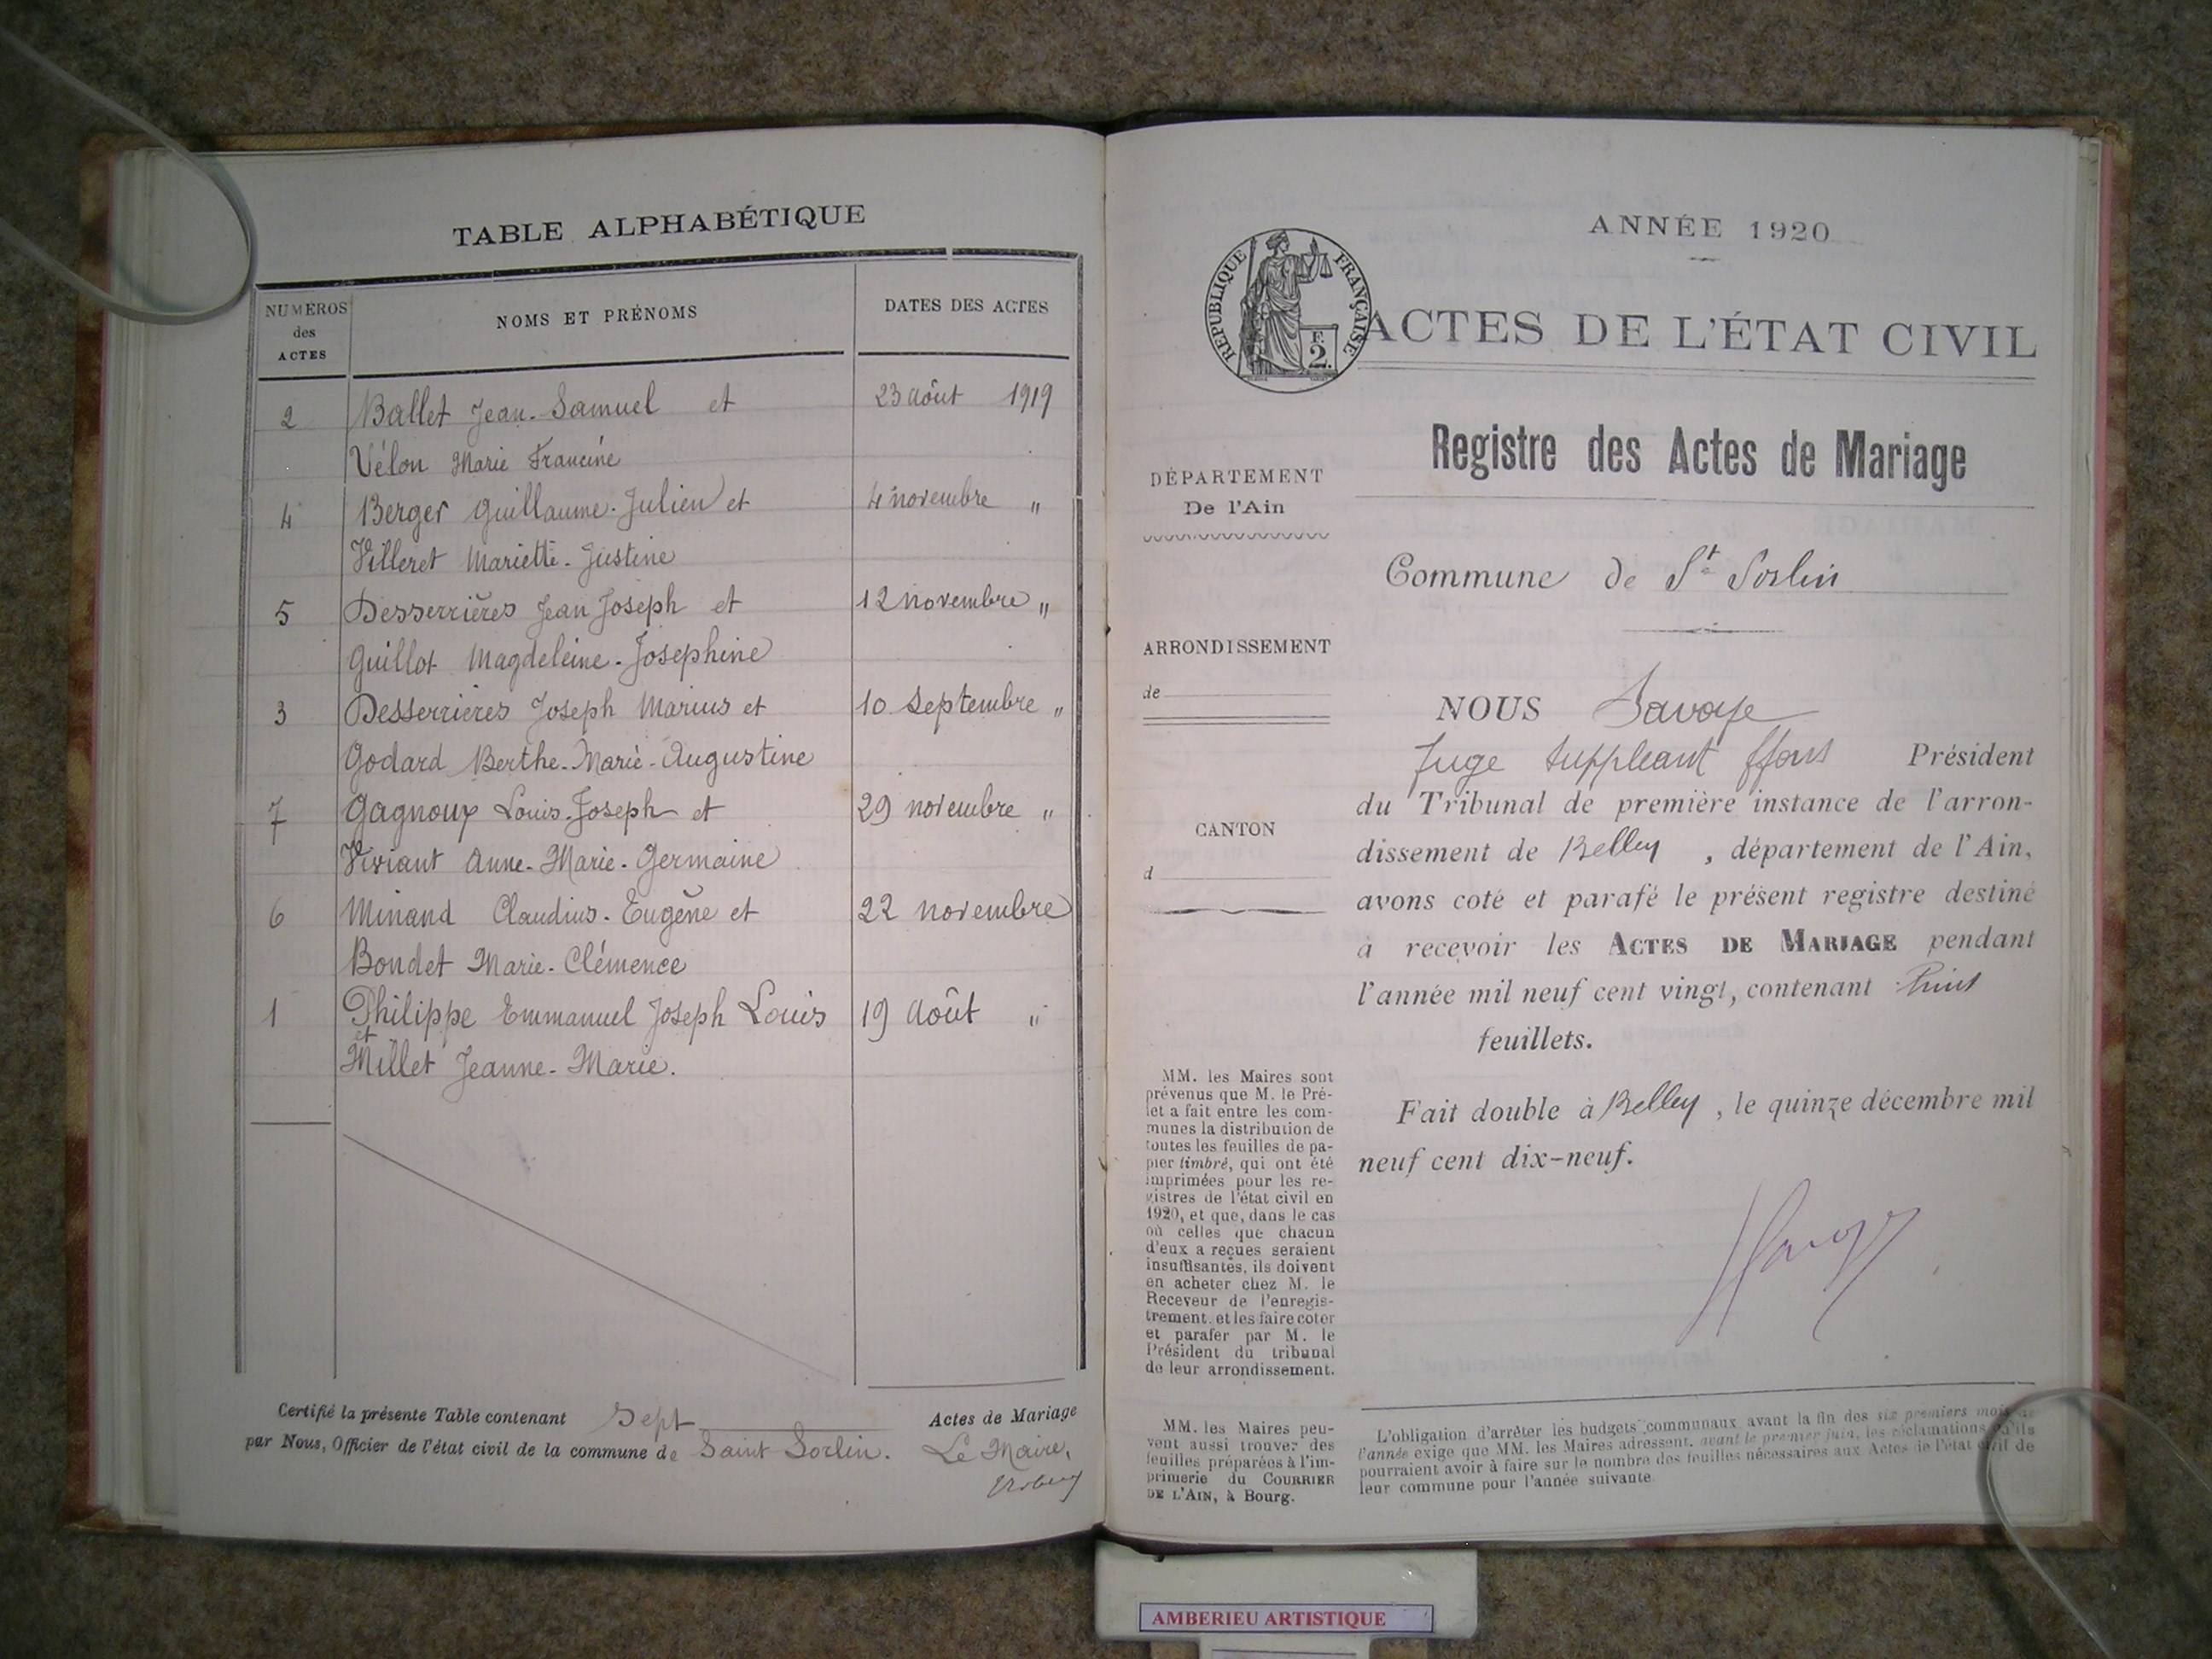 TABLE ALPHABÉTIQUE
NUMÉROS des ACTES
NOMS ET PRÉNOMS
DATES DES ACTES
2 Ballet Jean-Samuel et 23 août 1919
Vélon Marie Francine
4 Berger Guillaume-Julien et 4 novembre "
Villeret Mariette-Justine
5 Desserrières Jean Joseph et 12 novembre "
Guillot Magdeleine-Josephine
3 Desserrières Joseph Marius et 10 Septembre "
Godard Berthe-Marie-Augustine
7 Gagnoux Louis-Joseph et 29 novembre "
Viviant Anne-Marie-Germaine
6 Minand Claudius-Eugène et 22 novembre
Bondet Marie-Clémence
1 Philippe Emmanuel Joseph Louis 19 Août "
et
Millet Jeanne-Marie.
Certifié la présente Table contenant Sept Actes de Mariage
par Nous, Officier de l'état civil de la commune de Saint Sorlin. Le Maire,
ANNÉE 1920
RÉPUBLIQUE FRANÇAISE
F.
2.
ACTES DE L'ÉTAT CIVIL
Registre des Actes de Mariage
DÉPARTEMENT
De l'Ain
Commune de St Sorlin
ARRONDISSEMENT
de
CANTON
d
NOUS Savoye
Juge suppléant ffons Président
du Tribunal de première instance de l'arron-
dissement de Belley, département de l'Ain,
avons coté et parafé le présent registre destiné
à recevoir les ACTES DE MARIAGE pendant
l'année mil neuf cent vingt, contenant
feuillets.
Fait double à Belley, le quinze décembre mil
neuf cent dix-neuf.
MM. les Maires sont
prévenus que M. le Pré-
fet a fait entre les com-
munes la distribution de
toutes les feuilles de pa-
pier timbré, qui ont été
imprimées pour les re-
gistres de l'état civil en
1920, et que, dans le cas
où celles que chacun
d'eux a reçues seraient
insuffisantes, ils doivent
en acheter chez M. le
Receveur de l'enregis-
trement, et les faire coter
et parafer par M. le
Président du tribunal
de leur arrondissement.
MM. les Maires peu-
vent aussi trouver des
feuilles préparées à l'im-
primerie du COURRIER
DE L'AIN, à Bourg.
L'obligation d'arrêter les budgets communaux avant la fin des six premiers mois de
l'année exige que MM. les Maires adressent, avant le premier juin, les réclamations qu'ils
pourraient avoir à faire sur le nombre des feuilles nécessaires aux Actes de l'état civil de
leur commune pour l'année suivante.
AMBERIEU ARTISTIQUE